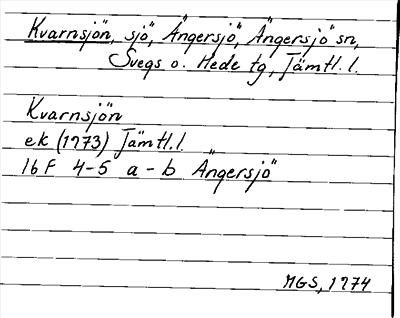 Kvarnsjön, sjö, Ängersjö, Ängersjö sn,
Svegs o. Hede tg, Jämtl. l.
Kvarnsjön
ek (1973) Jämtl. l.
16 F 4-5 a - b Ängersjö
MGS, 1974